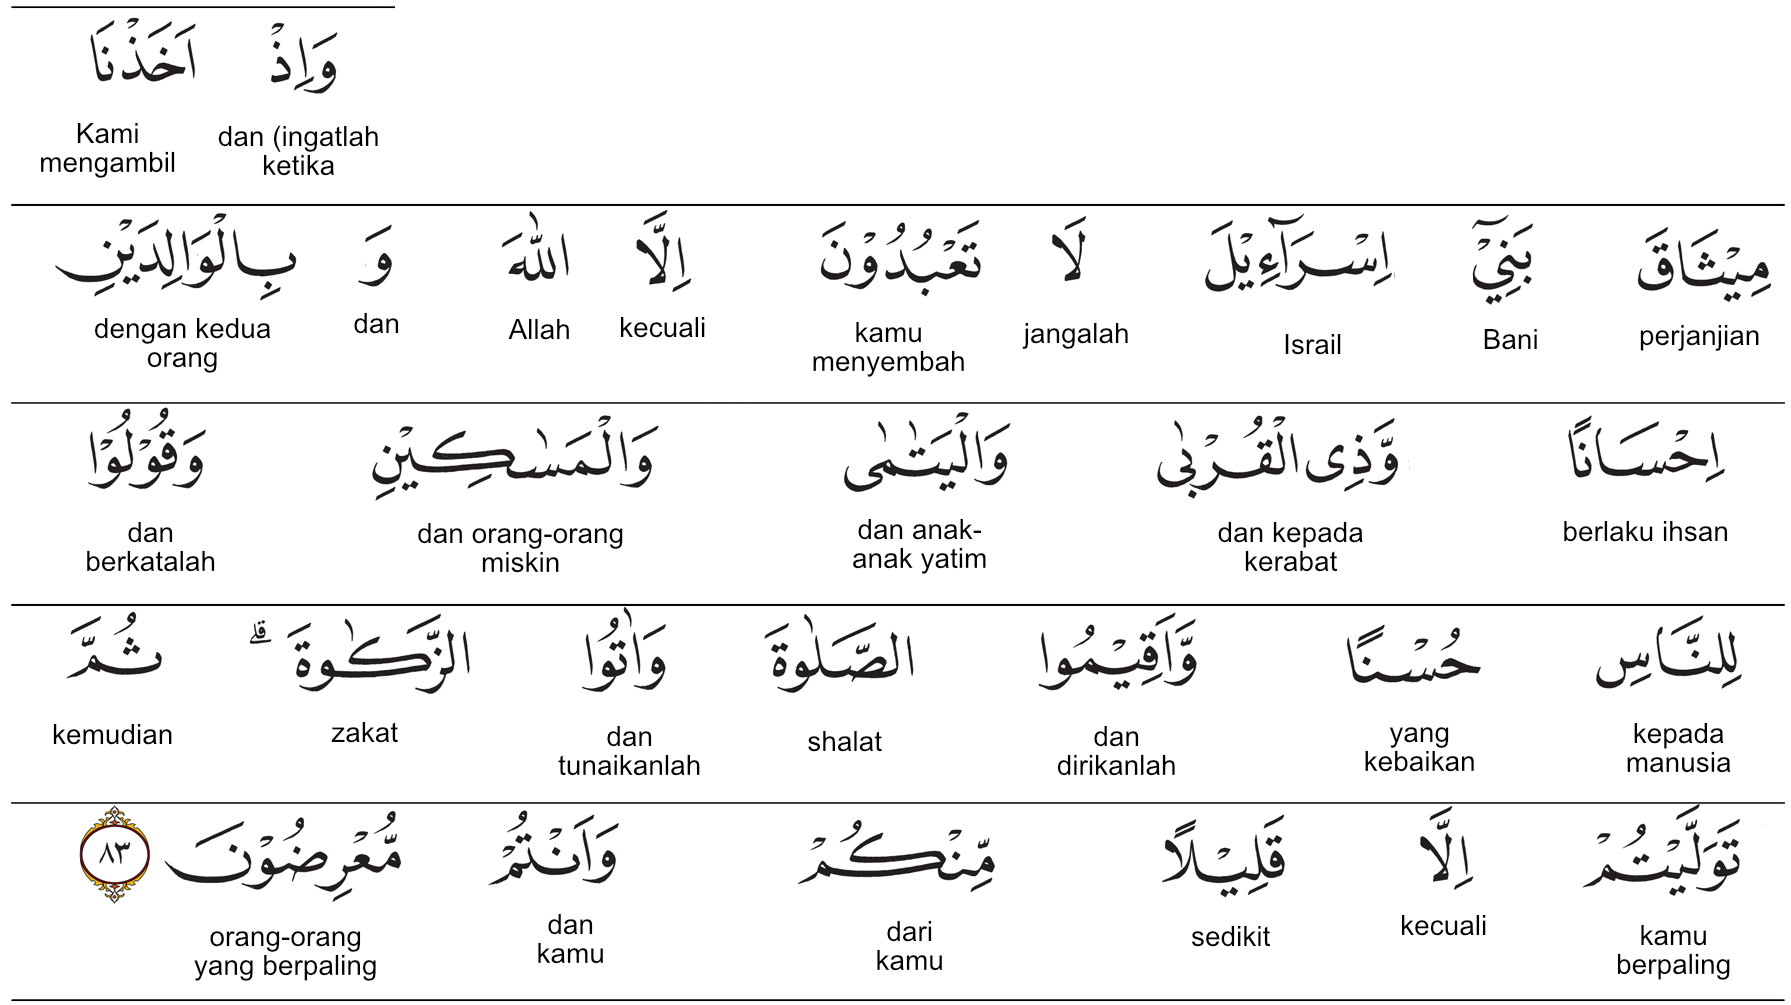 وَاِذْ اَخَذْنَا
dan (ingatlah ketika Kami mengambil
مِيْثَاقَ بَنِيْٓ اِسْرَآءِيْلَ لَا تَعْبُدُوْنَ اِلَّا اللّٰهَ وَ بِالْوَالِدَيْنِ
perjanjian Bani Israil jangalah kamu menyembah kecuali Allah dan dengan kedua orang
اِحْسَانًا وَّذِى الْقُرْبٰى وَالْيَتٰمٰى وَالْمَسٰكِيْنِ وَقُوْلُوْا
berlaku ihsan dan kepada kerabat dan anak-anak yatim dan orang-orang miskin dan berkatalah
لِلنَّاسِ حُسْنًا وَّاَقِيْمُوا الصَّلٰوةَ وَاٰتُوا الزَّكٰوةَ ۗ ثُمَّ
kepada manusia yang kebaikan dan dirikanlah shalat dan tunaikanlah zakat kemudian
تَوَلَّيْتُمْ اِلَّا قَلِيْلًا مِّنْكُمْ وَاَنْتُمْ مُّعْرِضُوْنَ ٨٣
kamu berpaling kecuali sedikit dari kamu dan kamu orang-orang yang berpaling